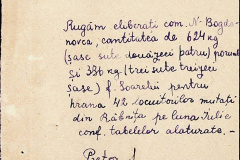 Rugăm eliberati com. N-Bogda-
novca, cantitatea de 624 kg
(șase sute douăzeci patru) porumb
și 336 kg (trei sute treizeci
șase) f. Soarelui pentru
hrana 42 locuitorilor mutați
din Râbnița pe luna Iulie
conf. tabelelor alaturate. -
Pretor